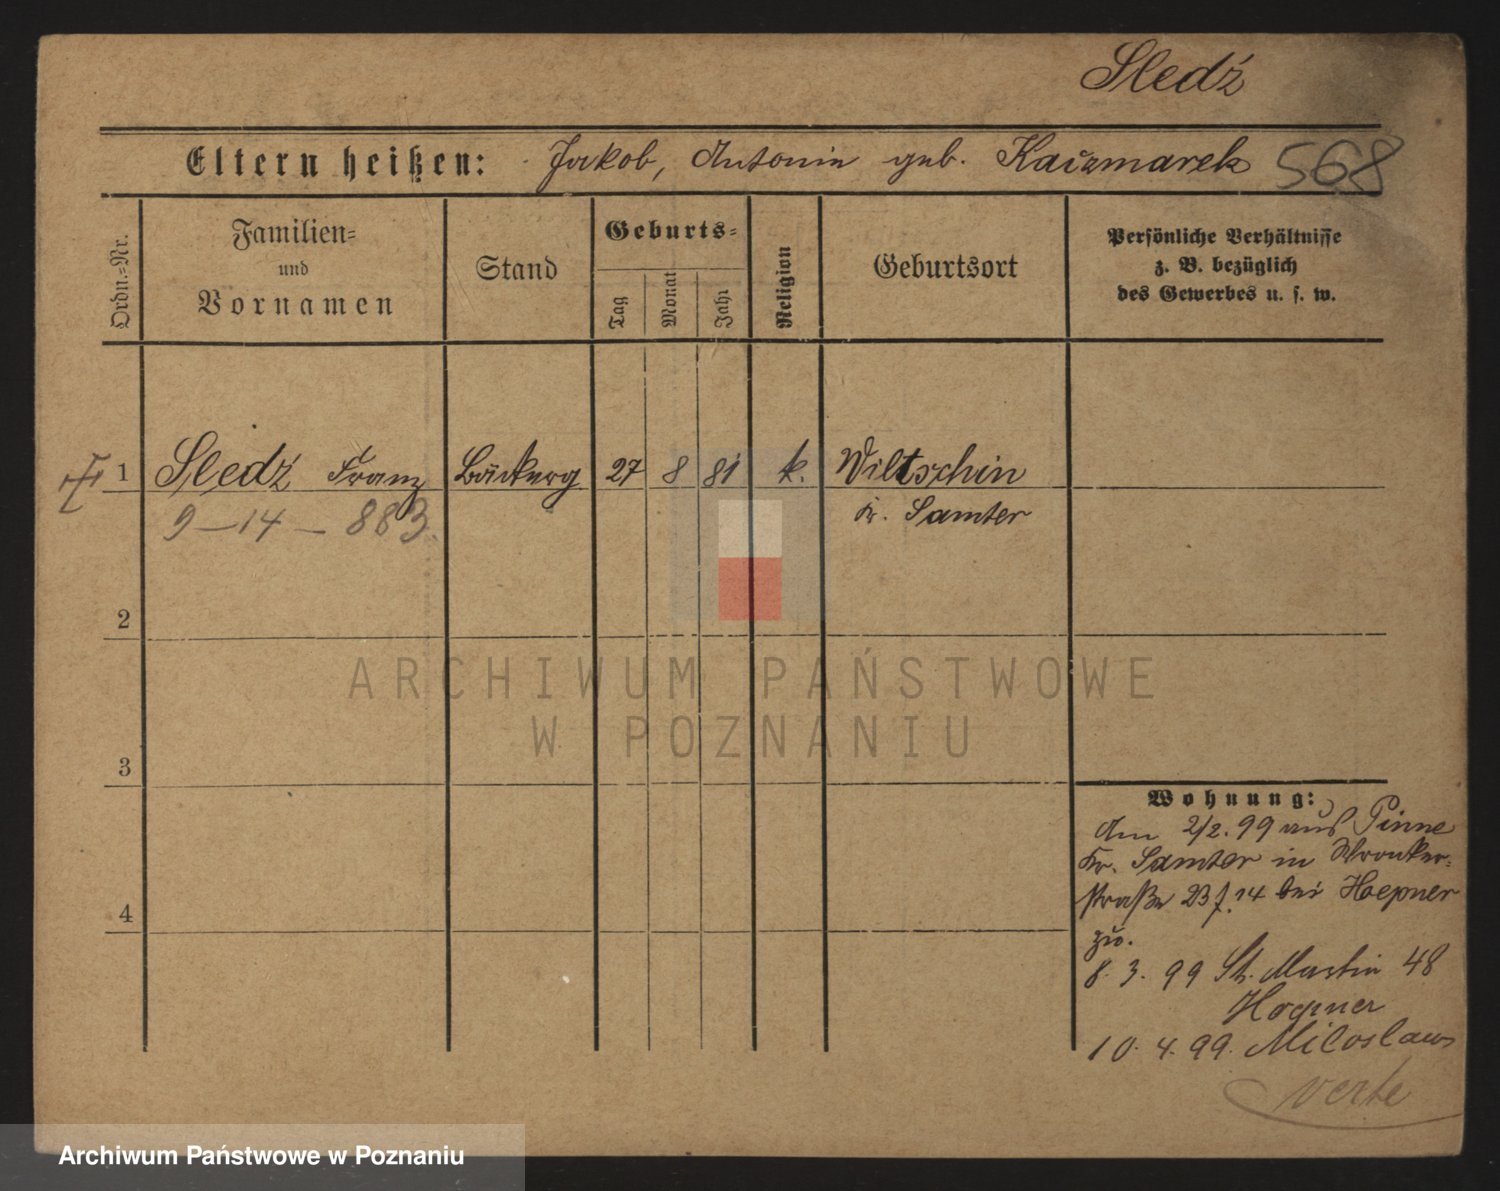 Sledź
Eltern heißen: Jakob, Antonie geb. Kaczmarek 568
Ordn.=Nr.
Familien=
und
Vornamen
Stand
Geburts=
Tag
Monat
Jahr
Religion
Geburtsort
Persönliche Verhältnisse
z. B. bezüglich
des Gewerbes u. s. w.
1 Sledź Franz Bäckerg 27 8 81 k. Wiltschin
Kr. Samter
9-14-883.
2
3
4
ARCHIWUM PAŃSTWOWE
W POZNANIU
Wohnung:
Am 2/2. 99 aus Pinne
Kr. Samter in Wronker=
straße 23 f. 14 bei Hoepner
zu.
8. 3. 99 St. Martin 48
Hoepner
10. 4. 99. Miloslaw
verte
Archiwum Państwowe w Poznaniu